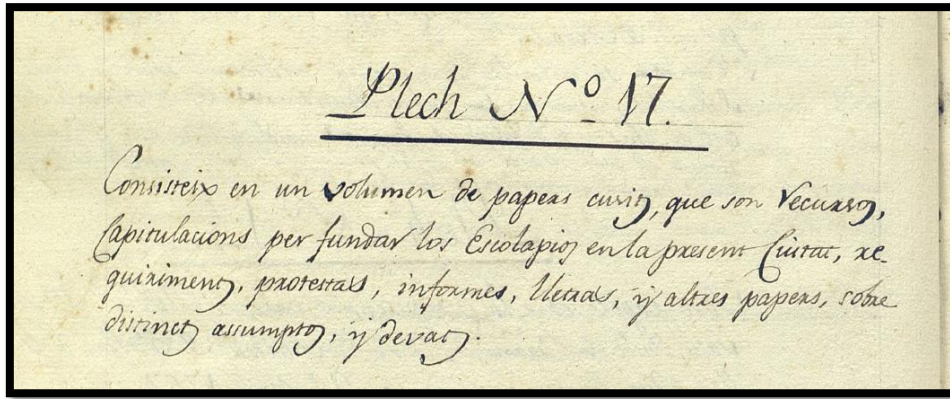 Plech Nº 17.
Consisteix en un volumen de papers cusits, que son recursos,
Capitulacions per fundar los Escolapios en la present Ciutat, re-
quiriments, protestas, informes, lletras, y altres papers, sobre
distincts assumptos, y devats.